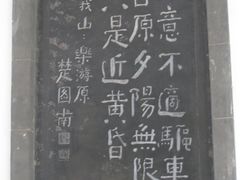 意不適驅車
古原夕陽無限
只是近黄昏
義山：樂游原
楚图南